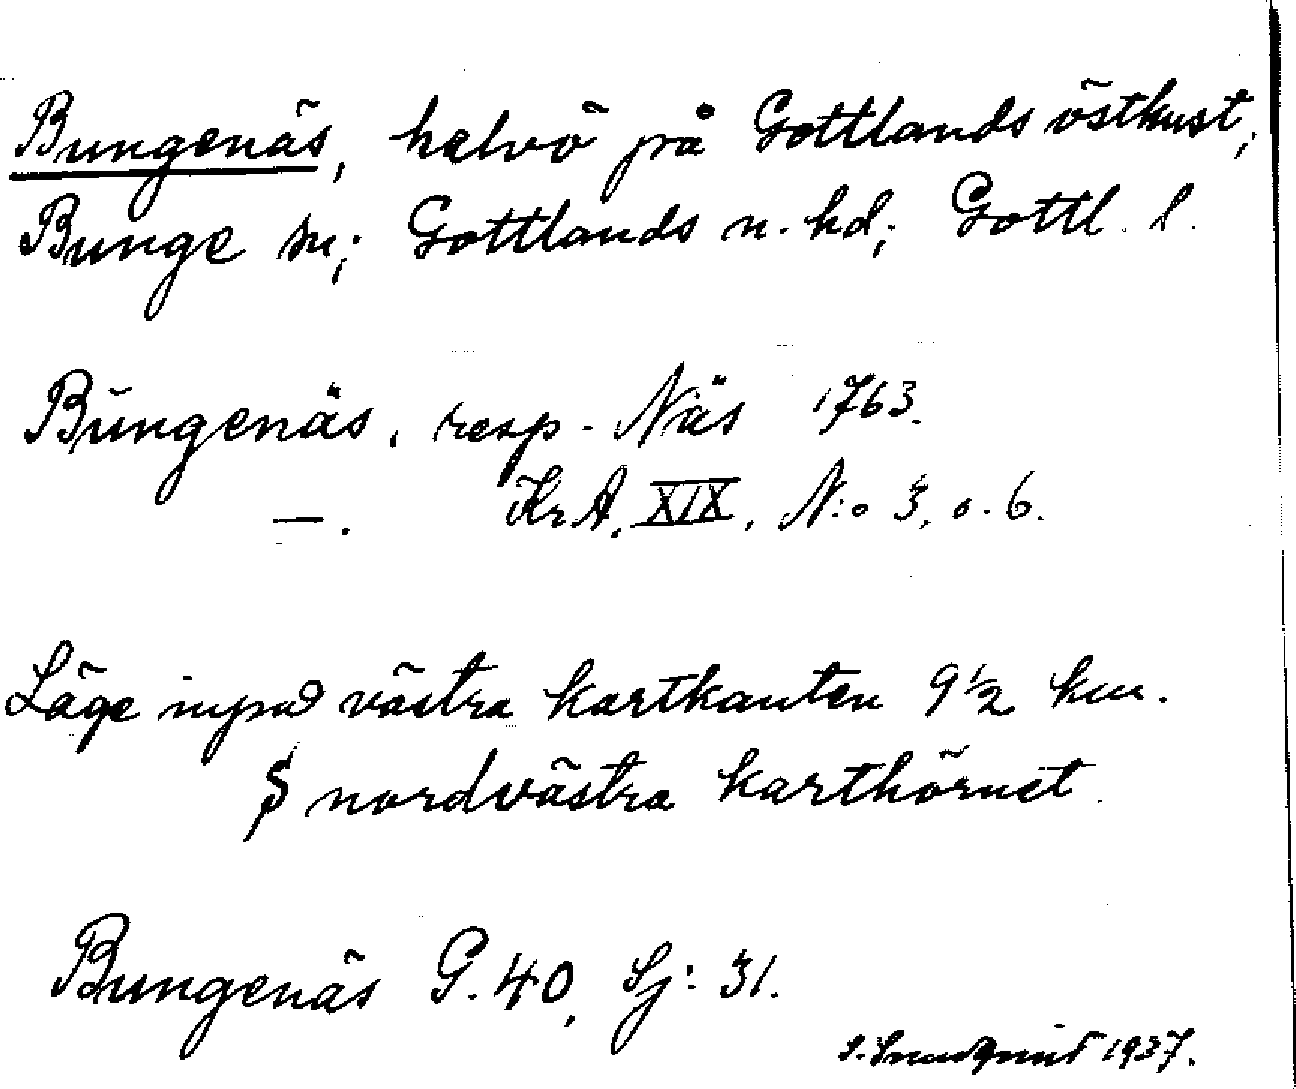 Bungenäs, halvö på Gottlands östkust;
Bunge sn; Gottlands n. hd; Gottl. l.
Bŭngenäs, resp. Näs 1763.
—. Kr A. XIX, N:o 3, o. 6.
Läge invid västra kartkanten 9½ km.
S nordvästra karthörnet.
Bungenäs G. 40, Sj: 31.
1937.